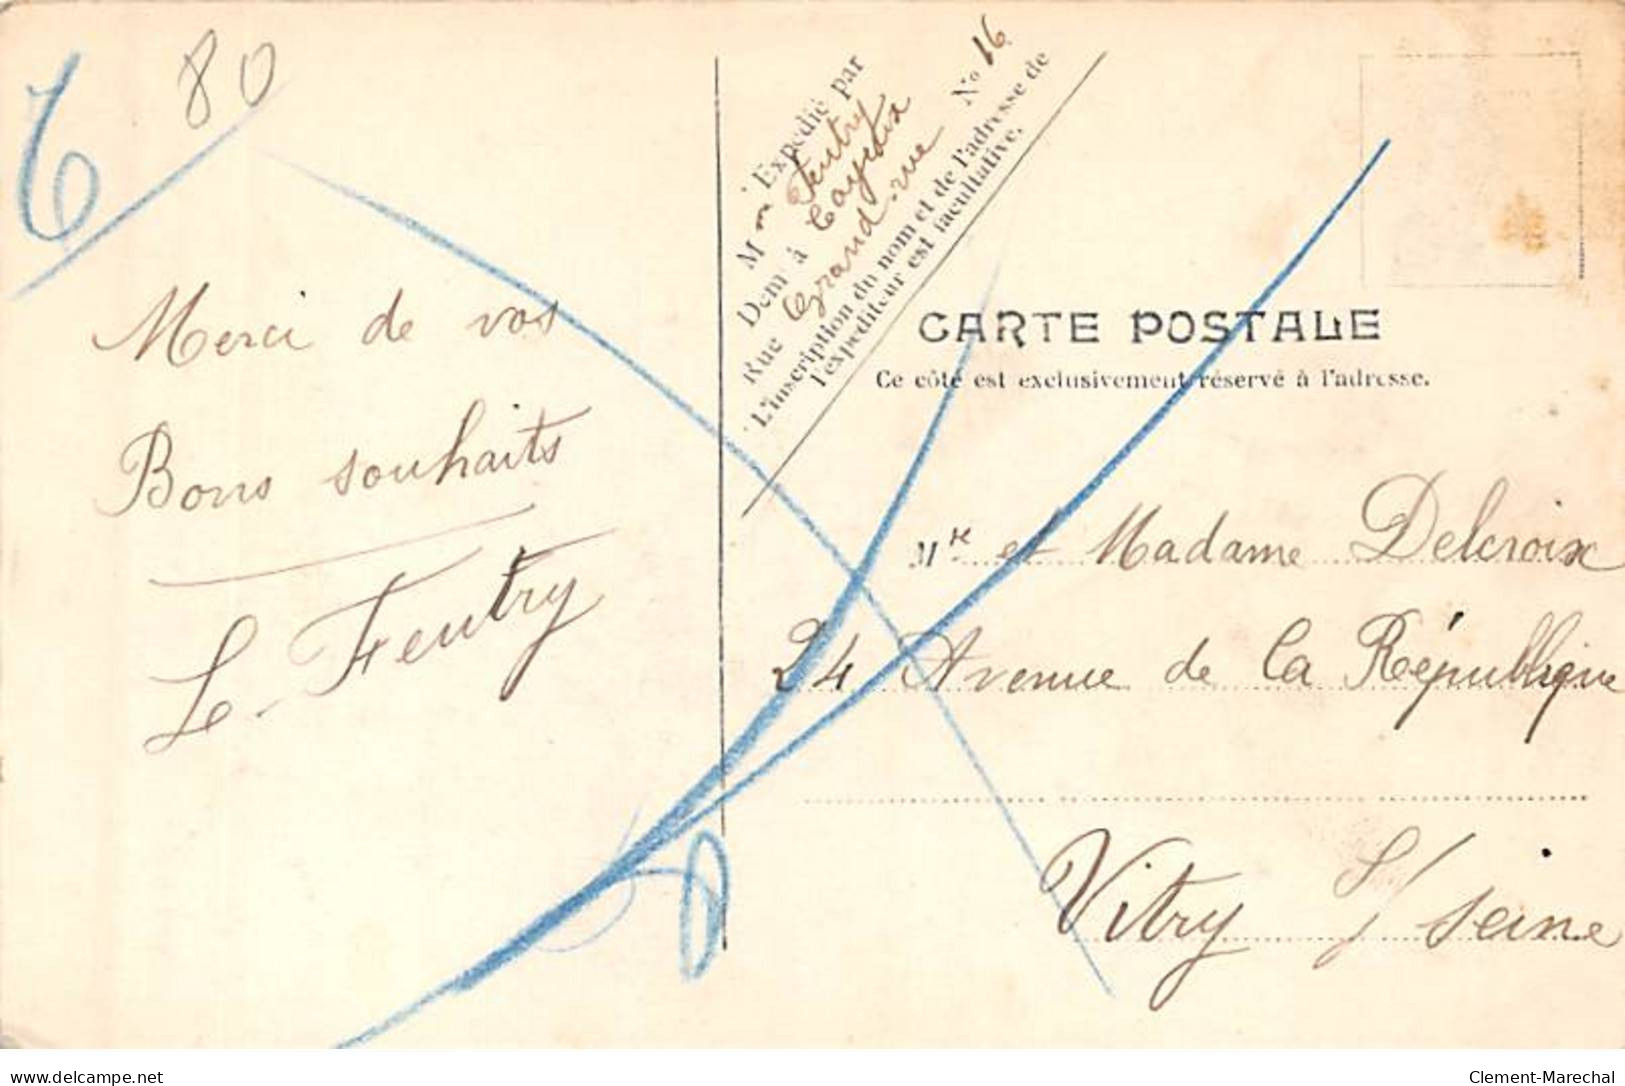 80
Merci de vos
Bons souhaits
L. Feutry
Expédié par
M Feutry
Dem à Cayeux
Rue Grand-rue No 16
L'inscription du nom et de l'adresse de
l'expéditeur est facultative.
CARTE POSTALE
Ce côté est exclusivement réservé à l'adresse.
Mre et Madame Delcroix
24 Avenue de la République
Vitry s/ seine
delcampe.net
Clement-Marechal